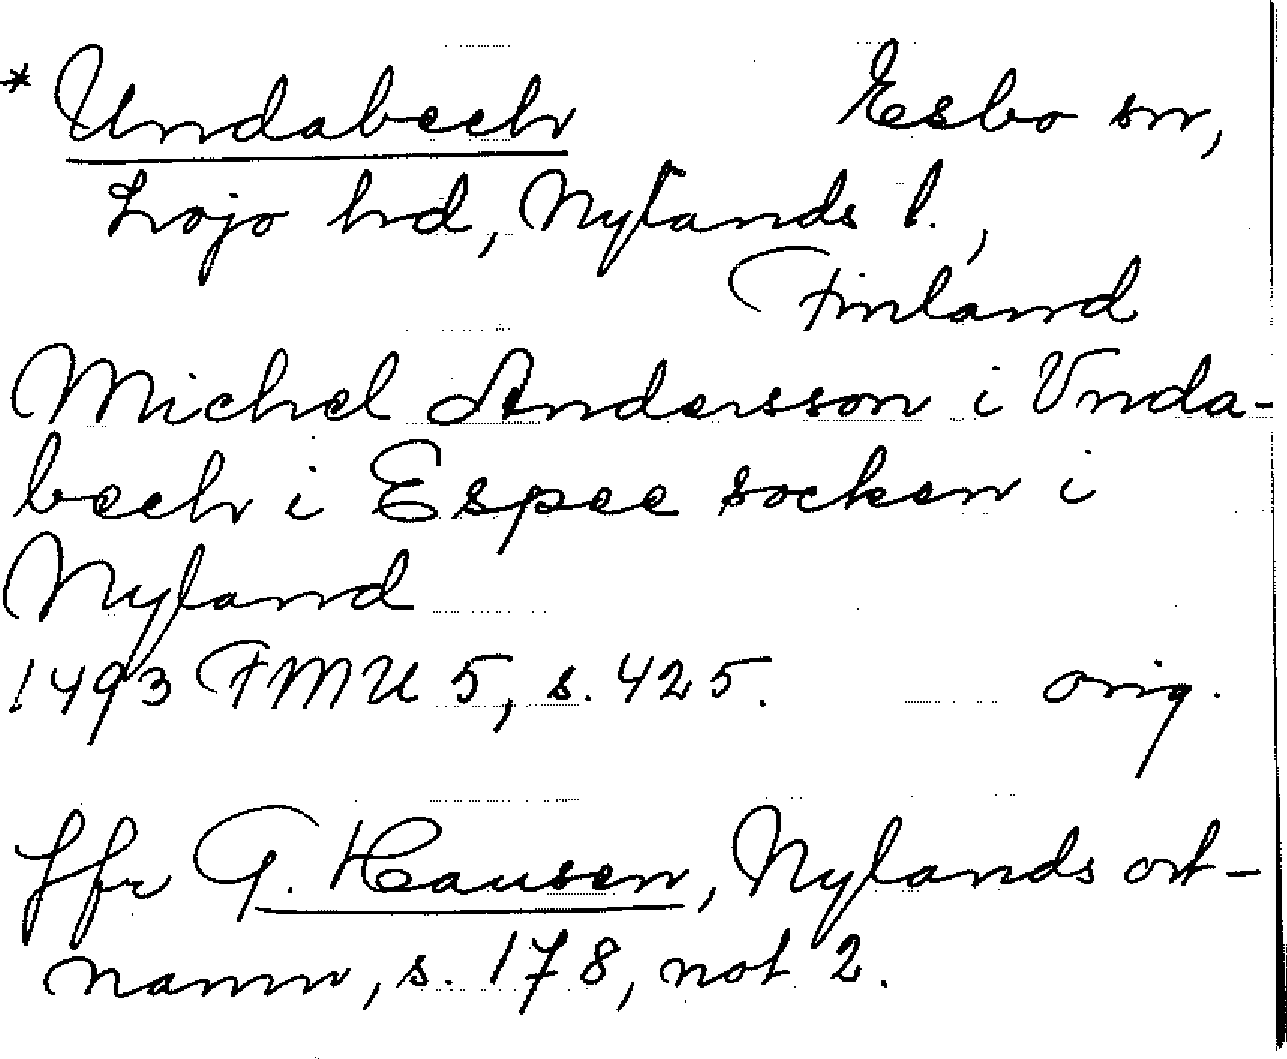 * Undabech Esbo sn,
Lojo hd, Nylands l.,
Finland
Michel Andersson i Vnda-
bech i Espee socken i
Nyland
1493 FMU 5, s. 425. orig.
Jfr G. Hausen, Nylands ort-
namn, s. 178, not 2.